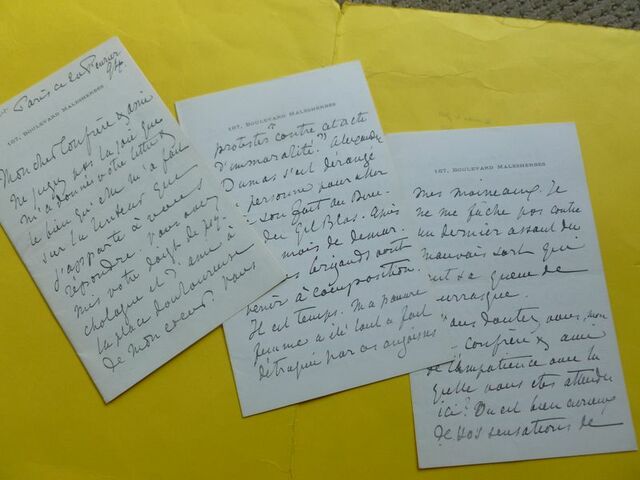 Paris ce 20 Février
94
107, BOULEVARD MALESHERBES
Mon cher Confrère & ami
Ne jugez pas la joie que
m'a donnée votre lettre &
le bien qu'elle m'a fait
sur la lenteur que
j'apporte à vous
répondre. Vous avez
mis votre doigt de psy-
chologue et d'ami à
la place douloureuse
de mon coeur. Vous
107, BOULEVARD MALESHERBES
protester "contre cet acte
d'immoralité". Alexandre
Dumas s'est dérangé
personne pour aller
son Gait au
du Gil Blas. Après
mois de
brigands vont
venir à composition.
Il est temps. Ma pauvre
femme a été tout à fait
détraquée par ces angoisses
107, BOULEVARD MALESHERBES
mes moineaux. Je
ne me fâche pas contre
un dernier assaut du
mauvais sort qui
la queue de
bourrasque.
Vous doutez vous, mon
confrère & ami
de l'impatience avec la
quelle vous êtes attendu
ici? On est bien curieux
de vos sensations de